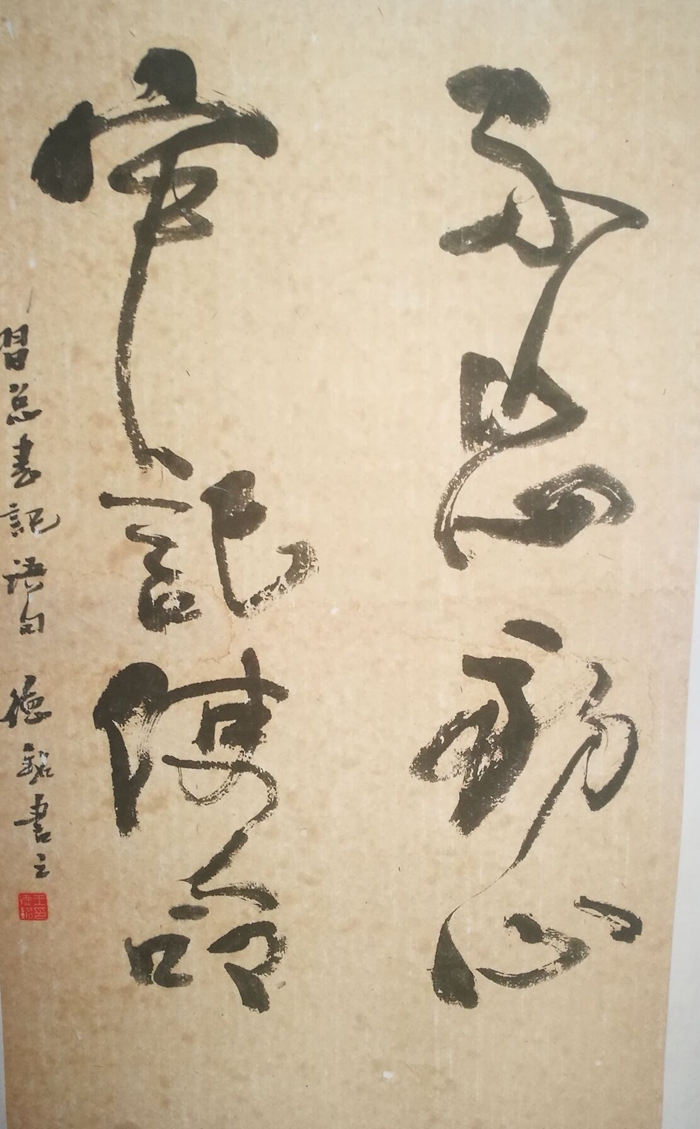 不忘初心
牢记使命
習总書記语句 德銘書之